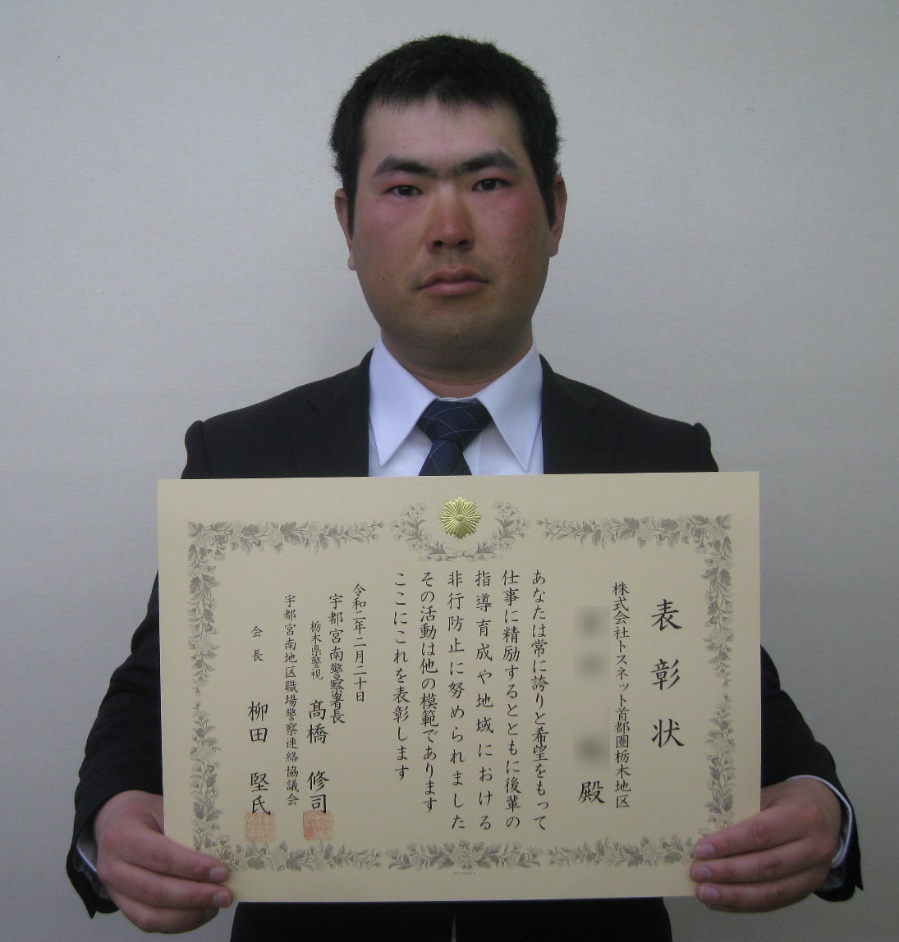 表彰状
株式会社トスネット首都圏栃木地区
殿
あなたは常に誇りと希望をもって
仕事に精励するとともに後輩の
指導育成や地域における
非行防止に努められました
その活動は他の模範であります
ここにこれを表彰します
令和二年二月二十日
宇都宮南警察署長
栃木県警視 髙橋 修司
宇都宮南地区職場警察連絡協議会
会長 柳田 堅氏